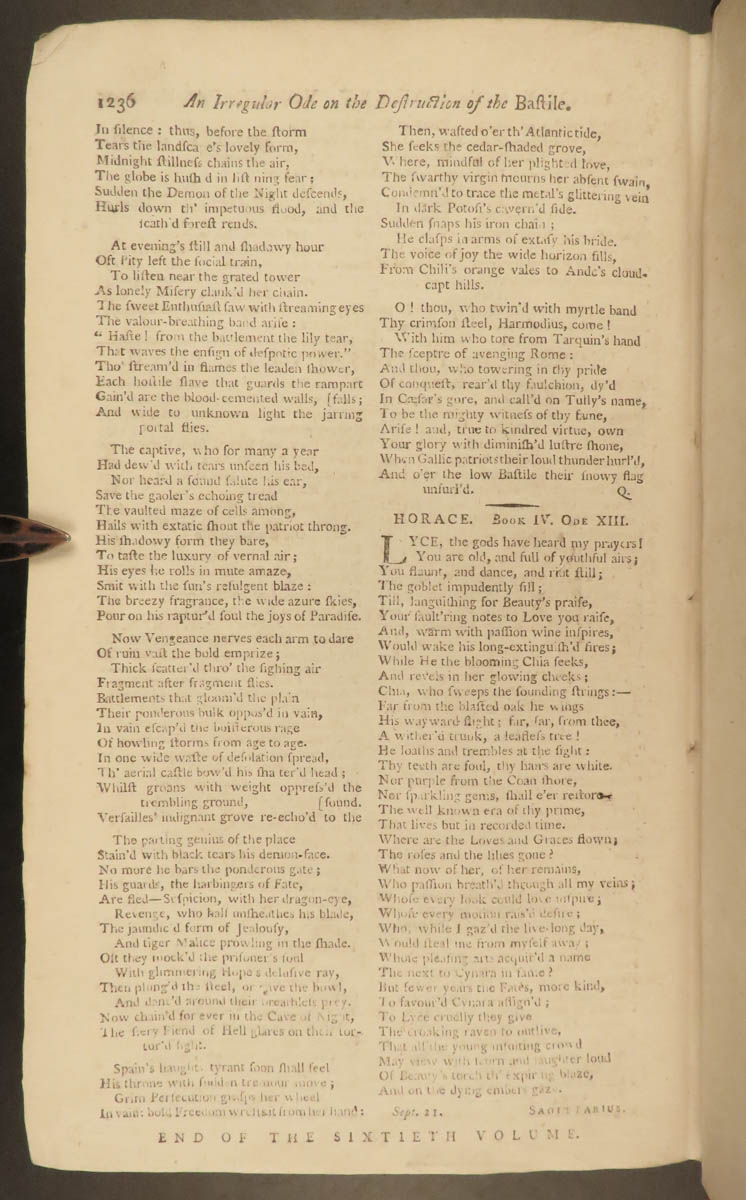 1236 An Irregular Ode on the Deſtruction of the Baſtile.
In ſilence : thus, before the ſtorm
Tears the landſca e's lovely form,
Midnight ſtillneſs chains the air,
The globe is huſh d in liſt ning fear ;
Sudden the Demon of the Night deſcends,
Hurls down th' impetuous flood, and the
ſcath'd foreſt rends.
At evening's ſtill and ſhadowy hour
Oft Pity left the ſocial train,
To liſten near the grated tower
As lonely Miſery clank'd her chain.
The ſweet Enthuſiaſt ſaw with ſtreaming eyes
The valour-breathing band ariſe :
" Haſte ! from the battlement the lily tear,
That waves the enſign of deſpotic power."
Tho' ſtream'd in flames the leaden ſhower,
Each hoſtile ſlave that guards the rampart
Gain'd are the blood-cemented walls, [falls;
And wide to unknown light the jarring
portal flies.
The captive, who for many a year
Had dew'd with tears unſeen his bed,
Nor heard a ſound ſalute his ear,
Save the gaoler's echoing tread
The vaulted maze of cells among,
Hails with extatic ſhout the patriot throng.
His ſhadowy form they bare,
To taſte the luxury of vernal air ;
His eyes he rolls in mute amaze,
Smit with the ſun's refulgent blaze :
The breezy fragrance, the wide azure ſkies,
Pour on his raptur'd ſoul the joys of Paradiſe.
Now Vengeance nerves each arm to dare
Of ruin vaſt the bold emprize ;
Thick ſcatter'd thro' the ſighing air
Fragment after fragment flies.
Battlements that gloom'd the plain
Their ponderous bulk oppos'd in vain,
In vain eſcap'd the boiſterous rage
Of howling ſtorms from age to age.
In one wide waſte of deſolation ſpread,
Th' aerial caſtle bow'd his ſha ter'd head ;
Whilſt groans with weight oppreſs'd the
trembling ground, [ſound.
Verſailles' indignant grove re-echo'd to the
The parting genius of the place
Stain'd with black tears his demon-face.
No more he bars the ponderous gate ;
His guards, the harbingers of Fate,
Are fled—Suſpicion, with her dragon-eye,
Revenge, who half unſheathes his blade,
The jaundic d form of Jealouſy,
And tiger Malice prowling in the ſhade.
Oft they mock'd the priſoner's ſoul
With glimmering Hope's deluſive ray,
Then plung'd the ſteel, or gave the bowl,
And danc'd around their breathleſs prey.
Now chain'd for ever in the Cave of Night,
The fiery Fiend of Hell glares on their tor-
tur'd ſight.
Spain's haughty tyrant ſoon ſhall feel
His throne with ſudden tremour move ;
Grim Perſecution graſps her wheel
In vain: bold Freedom wreſts it from her hand:
Then, wafted o'er th' Atlantic tide,
She ſeeks the cedar-ſhaded grove,
W here, mindful of her plighted love,
The ſwarthy virgin mourns her abſent ſwain,
Condemn'd to trace the metal's glittering vein
In dark Potoſi's cavern'd ſide.
Sudden ſnaps his iron chain ;
He claſps in arms of extaſy his bride.
The voice of joy the wide horizon fills,
From Chili's orange vales to Ande's cloud-
capt hills.
O ! thou, who twin'd with myrtle band
Thy crimſon ſteel, Harmodius, come !
With him who tore from Tarquin's hand
The ſceptre of avenging Rome :
And thou, who towering in thy pride
Of conqueſt, rear'd thy faulchion, dy'd
In Cæſar's gore, and call'd on Tully's name,
To be the mighty witneſs of thy fame,
Ariſe ! and, true to kindred virtue, own
Your glory with diminiſh'd luſtre ſhone,
When Gallic patriots their loud thunder hurl'd,
And o'er the low Baſtile their ſnowy flag
unfurl'd. Q.
HORACE. BOOK IV. ODE XIII.
LYCE, the gods have heard my prayers!
You are old, and full of youthful airs;
You flaunt, and dance, and riot ſtill;
The goblet impudently fill;
Till, languiſhing for Beauty's praiſe,
Your fault'ring notes to Love you raiſe,
And, warm with paſſion wine inſpires,
Would wake his long-extinguiſh'd fires;
While He the blooming Chia ſeeks,
And revels in her glowing cheeks;
Chia, who ſweeps the ſounding ſtrings:—
Far from the blaſted oak he wings
His wayward flight; far, far, from thee,
A wither'd trunk, a leafleſs tree !
He loaths and trembles at the ſight:
Thy teeth are foul, thy hairs are white.
Nor purple from the Coan ſhore,
Nor ſparkling gems, ſhall e'er reſtore
The well known era of thy prime,
That lives but in recorded time.
Where are the Loves and Graces flown;
The roſes and the lilies gone ?
What now of her, of her remains,
Who paſſion breath'd through all my veins;
Whoſe every look could love inſpire;
Whoſe every motion rais'd deſire;
Who, while I gaz'd the live-long day,
Would ſteal me from myſelf away ;
Whoſe pleaſing arts acquir'd a name
The next to Cynara in fame ?
But fewer years the Fates, more kind,
To favour'd Cynara aſſign'd ;
To Lyce cruelly they give
The croaking raven to outlive,
That all the young inſulting crowd
May view with ſcorn and laughter loud
Of Beauty's torch th' expiring blaze,
And on the dying embers gaze.
Sept. 21. SAGITTARIUS.
END OF THE SIXTIETH VOLUME.